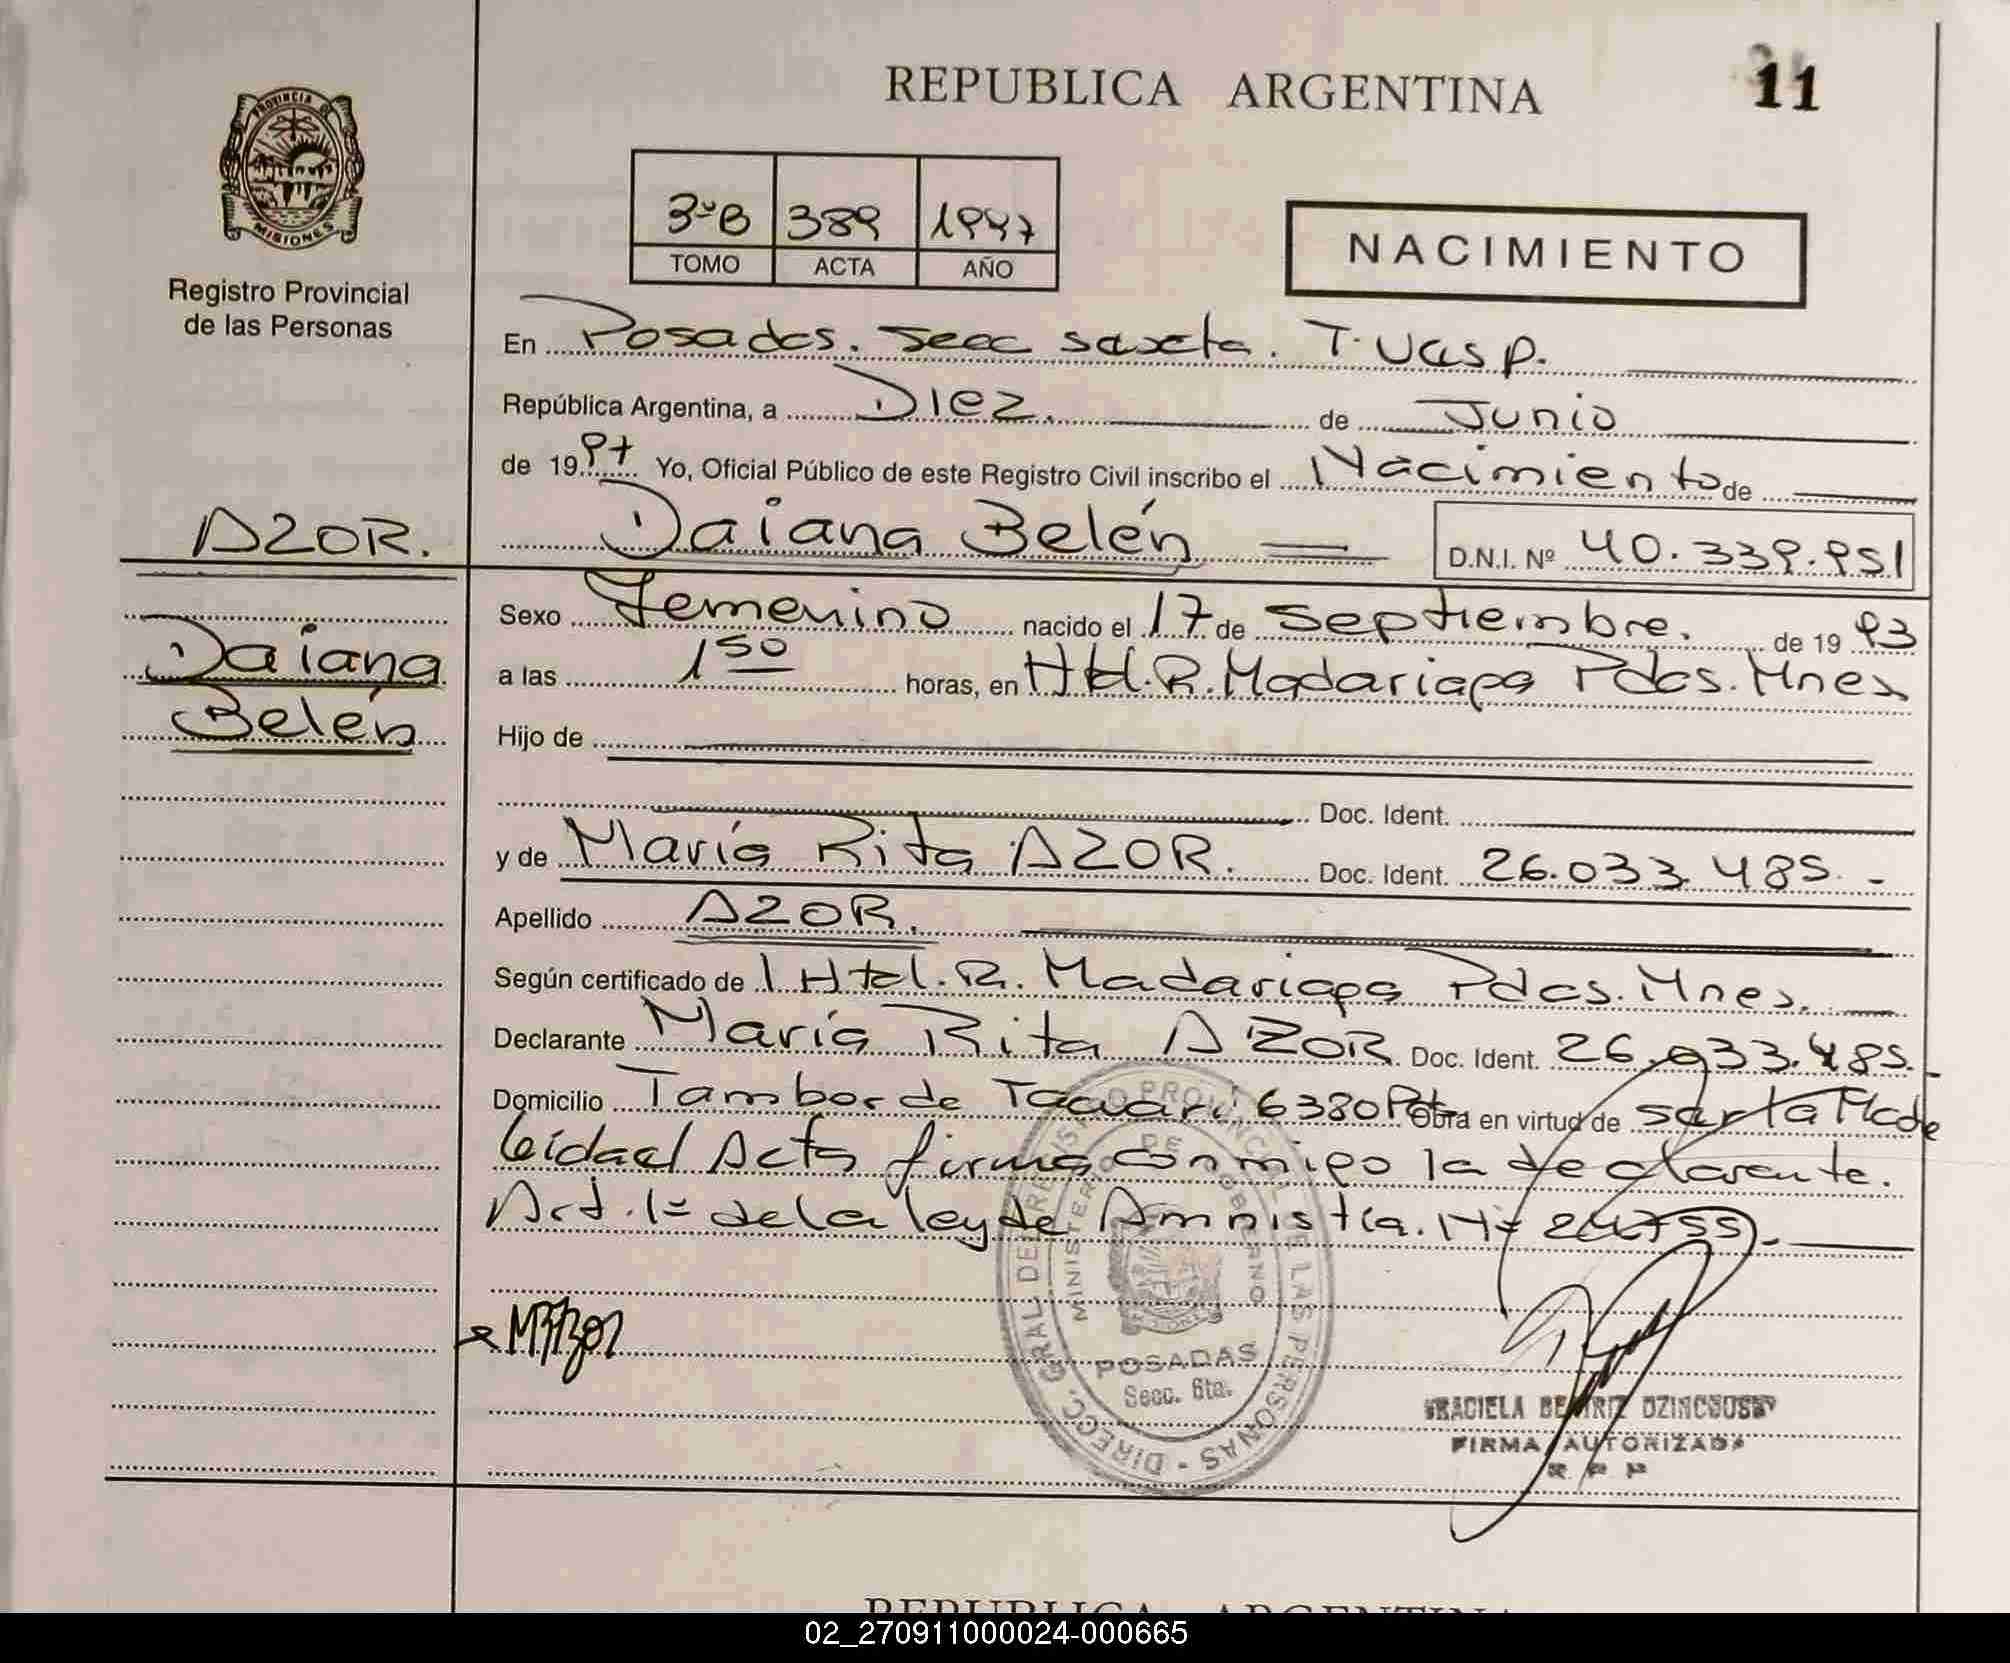 REPUBLICA ARGENTINA
11
PROVINCIA DE
MISIONES
Registro Provincial
de las Personas
3ºB 389 1997
TOMO ACTA AÑO
NACIMIENTO
En Posadas. Secc sexta. T.
República Argentina, a Diez. de Junio
de 1997 Yo, Oficial Público de este Registro Civil inscribo el Nacimiento de
AZOR.
Daiana Belén D.N.I. Nº 40.339.951
Daiana
Belén
Sexo Femenino nacido el 17 de septiembre. de 1993
a las 1 50 horas, en Htal.R.Madariaga Pdas.Mnes
Hijo de
Doc. Ident.
y de María Rita AZOR. Doc. Ident. 26.033.485.-
Apellido AZOR.
Según certificado de l Htal.R.Madariaga Pdas.Mnes.
Declarante María Rita AZOR Doc. Ident. 26.033.485.-
Domicilio Tambor de Tacuari 6380 Obra en virtud de ser la Made
leida el Acta firma conmigo la declarante.
Art.1º de la ley de Amnistia.Nº 24755.-
DIRECC. GRAL DEL REGISTRO PROVINCIAL DE LAS PERSONAS
MINISTERIO DE GOBIERNO
POSADAS
Secc. 6ta.
GRACIELA BEATRIZ
FIRMA AUTORIZADA
R P P
REPUBLICA ARGENTINA
02_270911000024-000665